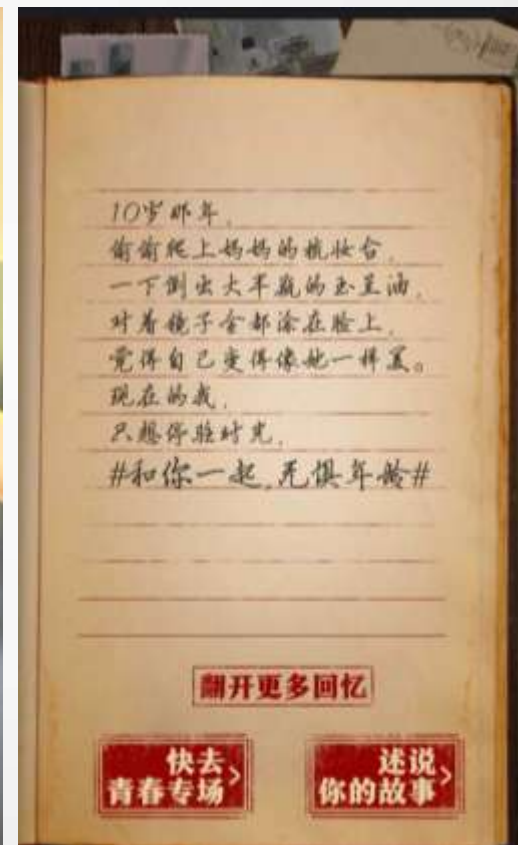 10岁那年,
偷偷爬上妈妈的梳妆台,
一下倒出大半瓶的玉兰油,
对着镜子全部涂在脸上,
觉得自己变得像她一样美。
现在的我,
只想停驻时光,
#和你一起,无惧年龄#
翻开更多回忆
快去
青春专场
述说
你的故事